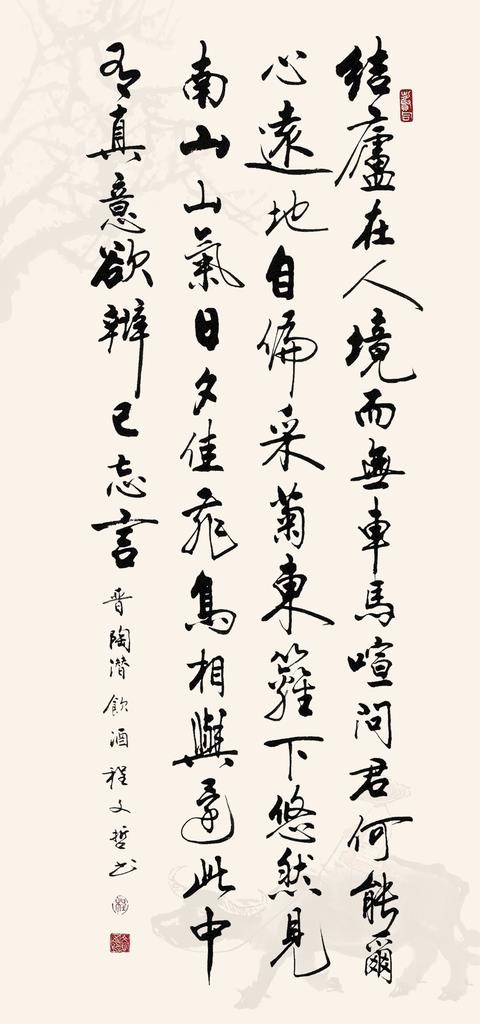 結廬在人境而無車馬喧問君何能爾
心遠地自偏采菊東籬下悠然見
南山山氣日夕佳飛鳥相與還此中
有真意欲辯已忘言
晉陶潛飲酒程文哲书